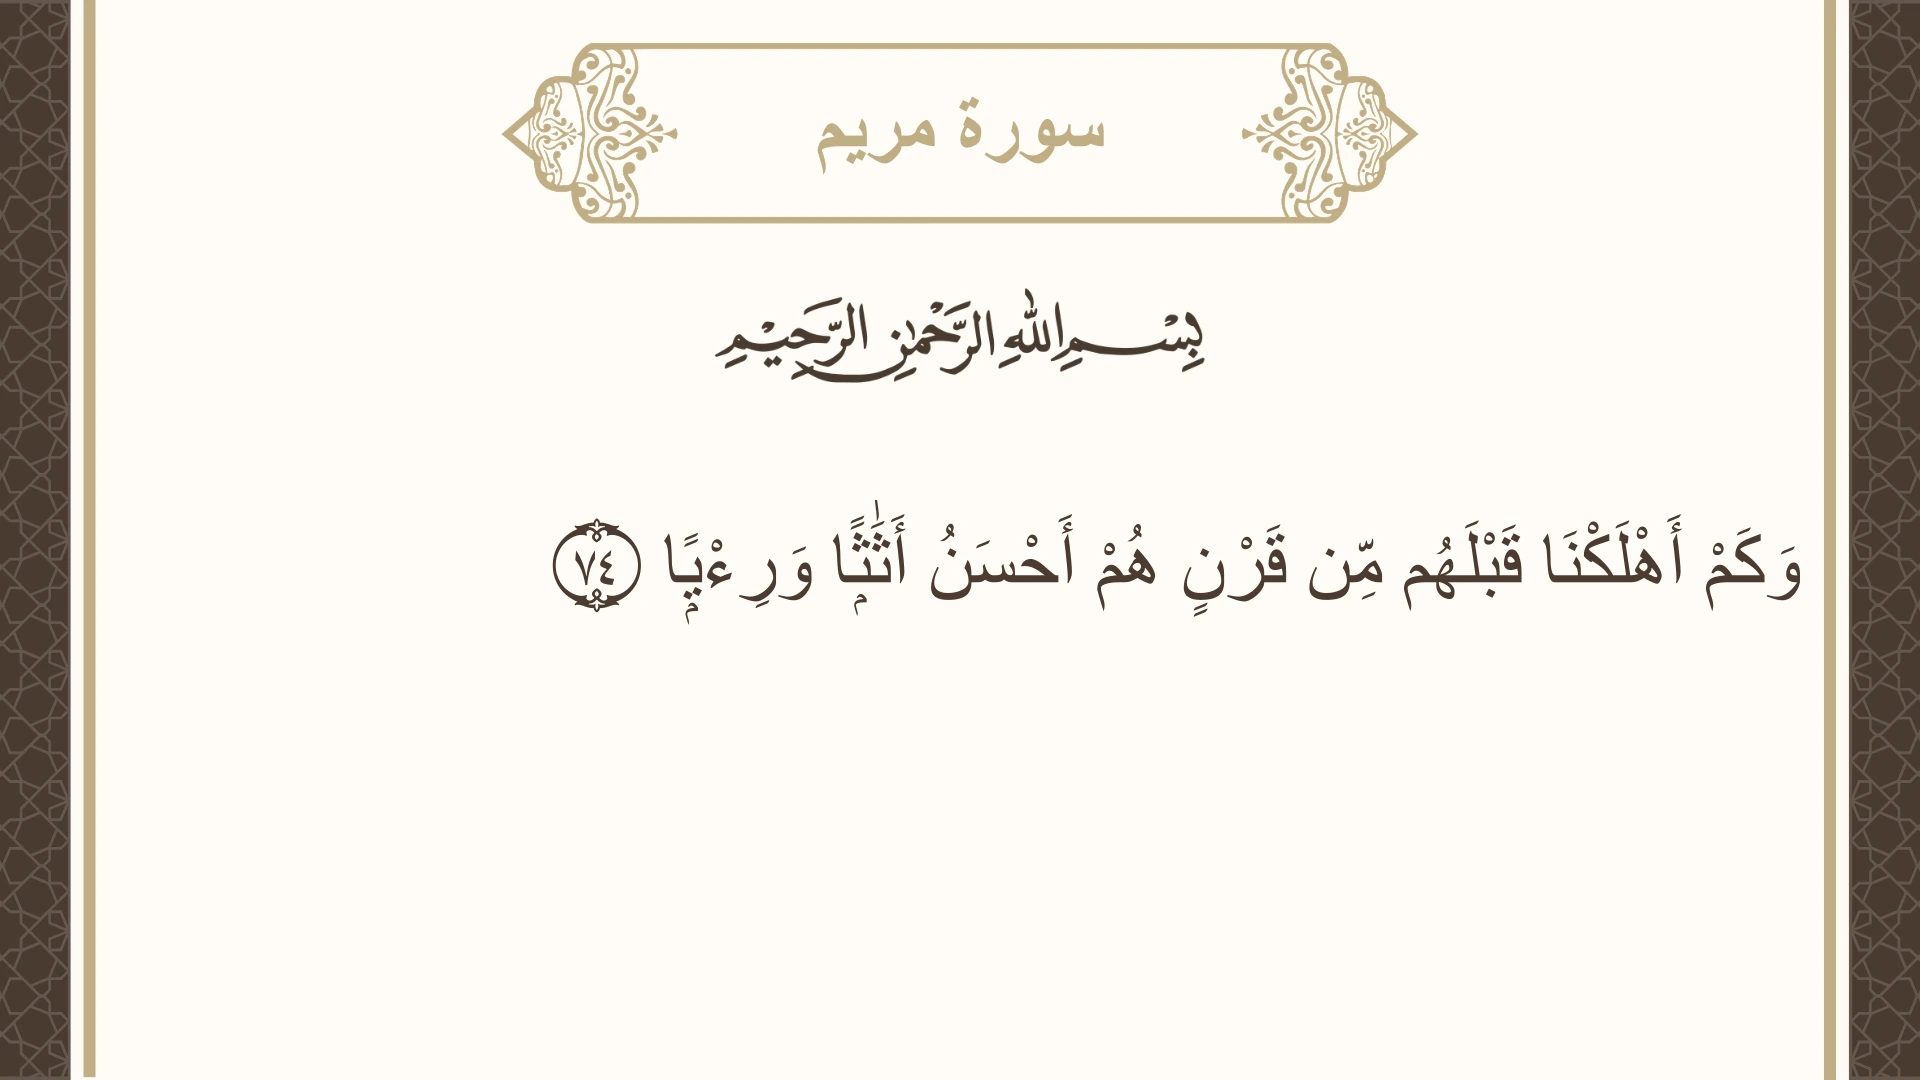 سورة مريم
بِسْمِ اللهِ الرَّحْمٰنِ الرَّحِيْمِ
وَكَمْ أَهْلَكْنَا قَبْلَهُم مِّن قَرْنٍ هُمْ أَحْسَنُ أَثَٰثًۭا وَرِءْيًۭا ٧٤